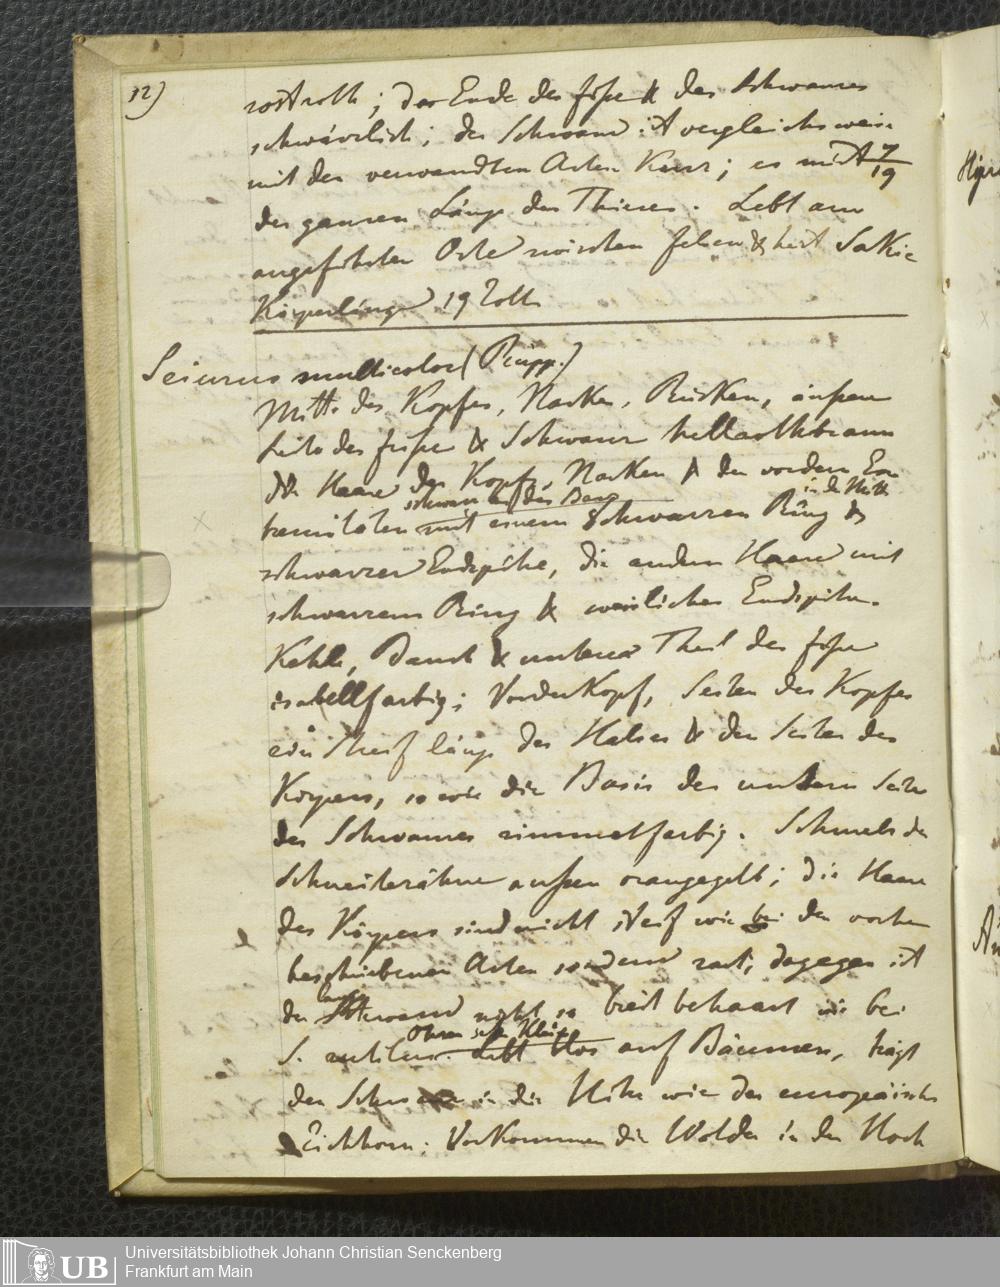 12)
rostroth; das Ende der Füße & des Schwanzes
schwärzlich; der Schwanz ist vergleichsweise
mit den verwandten Arten Kurz; es mißt 7/19
der ganzen Länge des Thieres. Lebt am
angeführten Orte zwischen Felsen & heist Sakie
Körperlänge 19 Zoll
Sciurus multicolor (Rüpp.)
Mitte des Kopfes, Nacken, Rücken, äußere
Seite der Füße & Schwanz hellrothbraun
die Haare des Kopfes, Nacken & der vordern Ex
schwarz an der Basis
in der Mitte
tremitäten mit einem schwarzen Ring &
schwarzer Endspitze, die andern Haare mit
schwarzem Ring & weislicher Endspitze.
Kehle, Bauch & unterer Theil der Füße
isabellfarbig; Vorderkopf, Seiten des Kopfes
ein Streif längs des Halses & den Seiten des
Körpers, so wie die Basis der untern Seite
des Schwanzes zimmetfarbig. Schmelz der
Schneidezähne außen orangegelb; die Haare
des Körpers sind nicht steif wie bei den vorher
beschriebenen Arten sondern zart; dagegen ist
der Schwanz nicht so breit behaart wie bei
Ohren sehr Klein
S. rutilus. Lebt blos auf Bäumen, trägt
den Schwanz in die Höhe wie das europäische
Eichhorn. Vorkommen die Wälder in den Hoch
Hyra
Universitätsbibliothek Johann Christian Senckenberg
Frankfurt am Main
UB